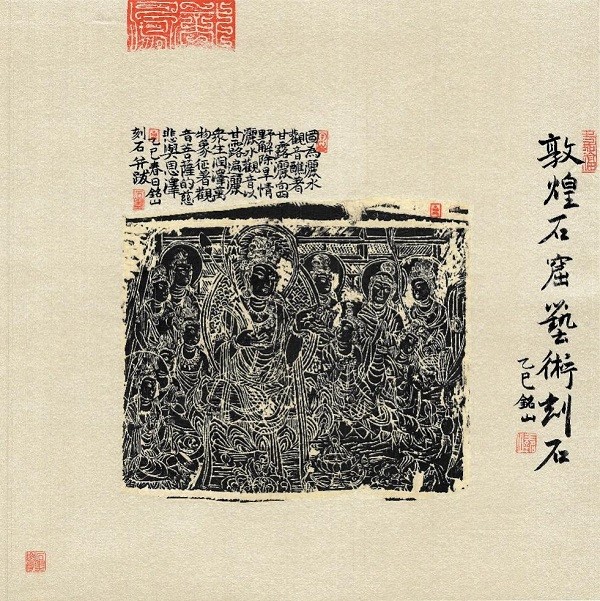 敦煌石窟藝術刻石
乙巳銘山
圖為灑水
觀音醮著
甘露灑
野解除旱情
灑水觀音以
甘露遍灑
衆生润澤萬
物象征著觀
音菩薩的慈
悲與恩澤
乙巳春日銘山
刻石并跋